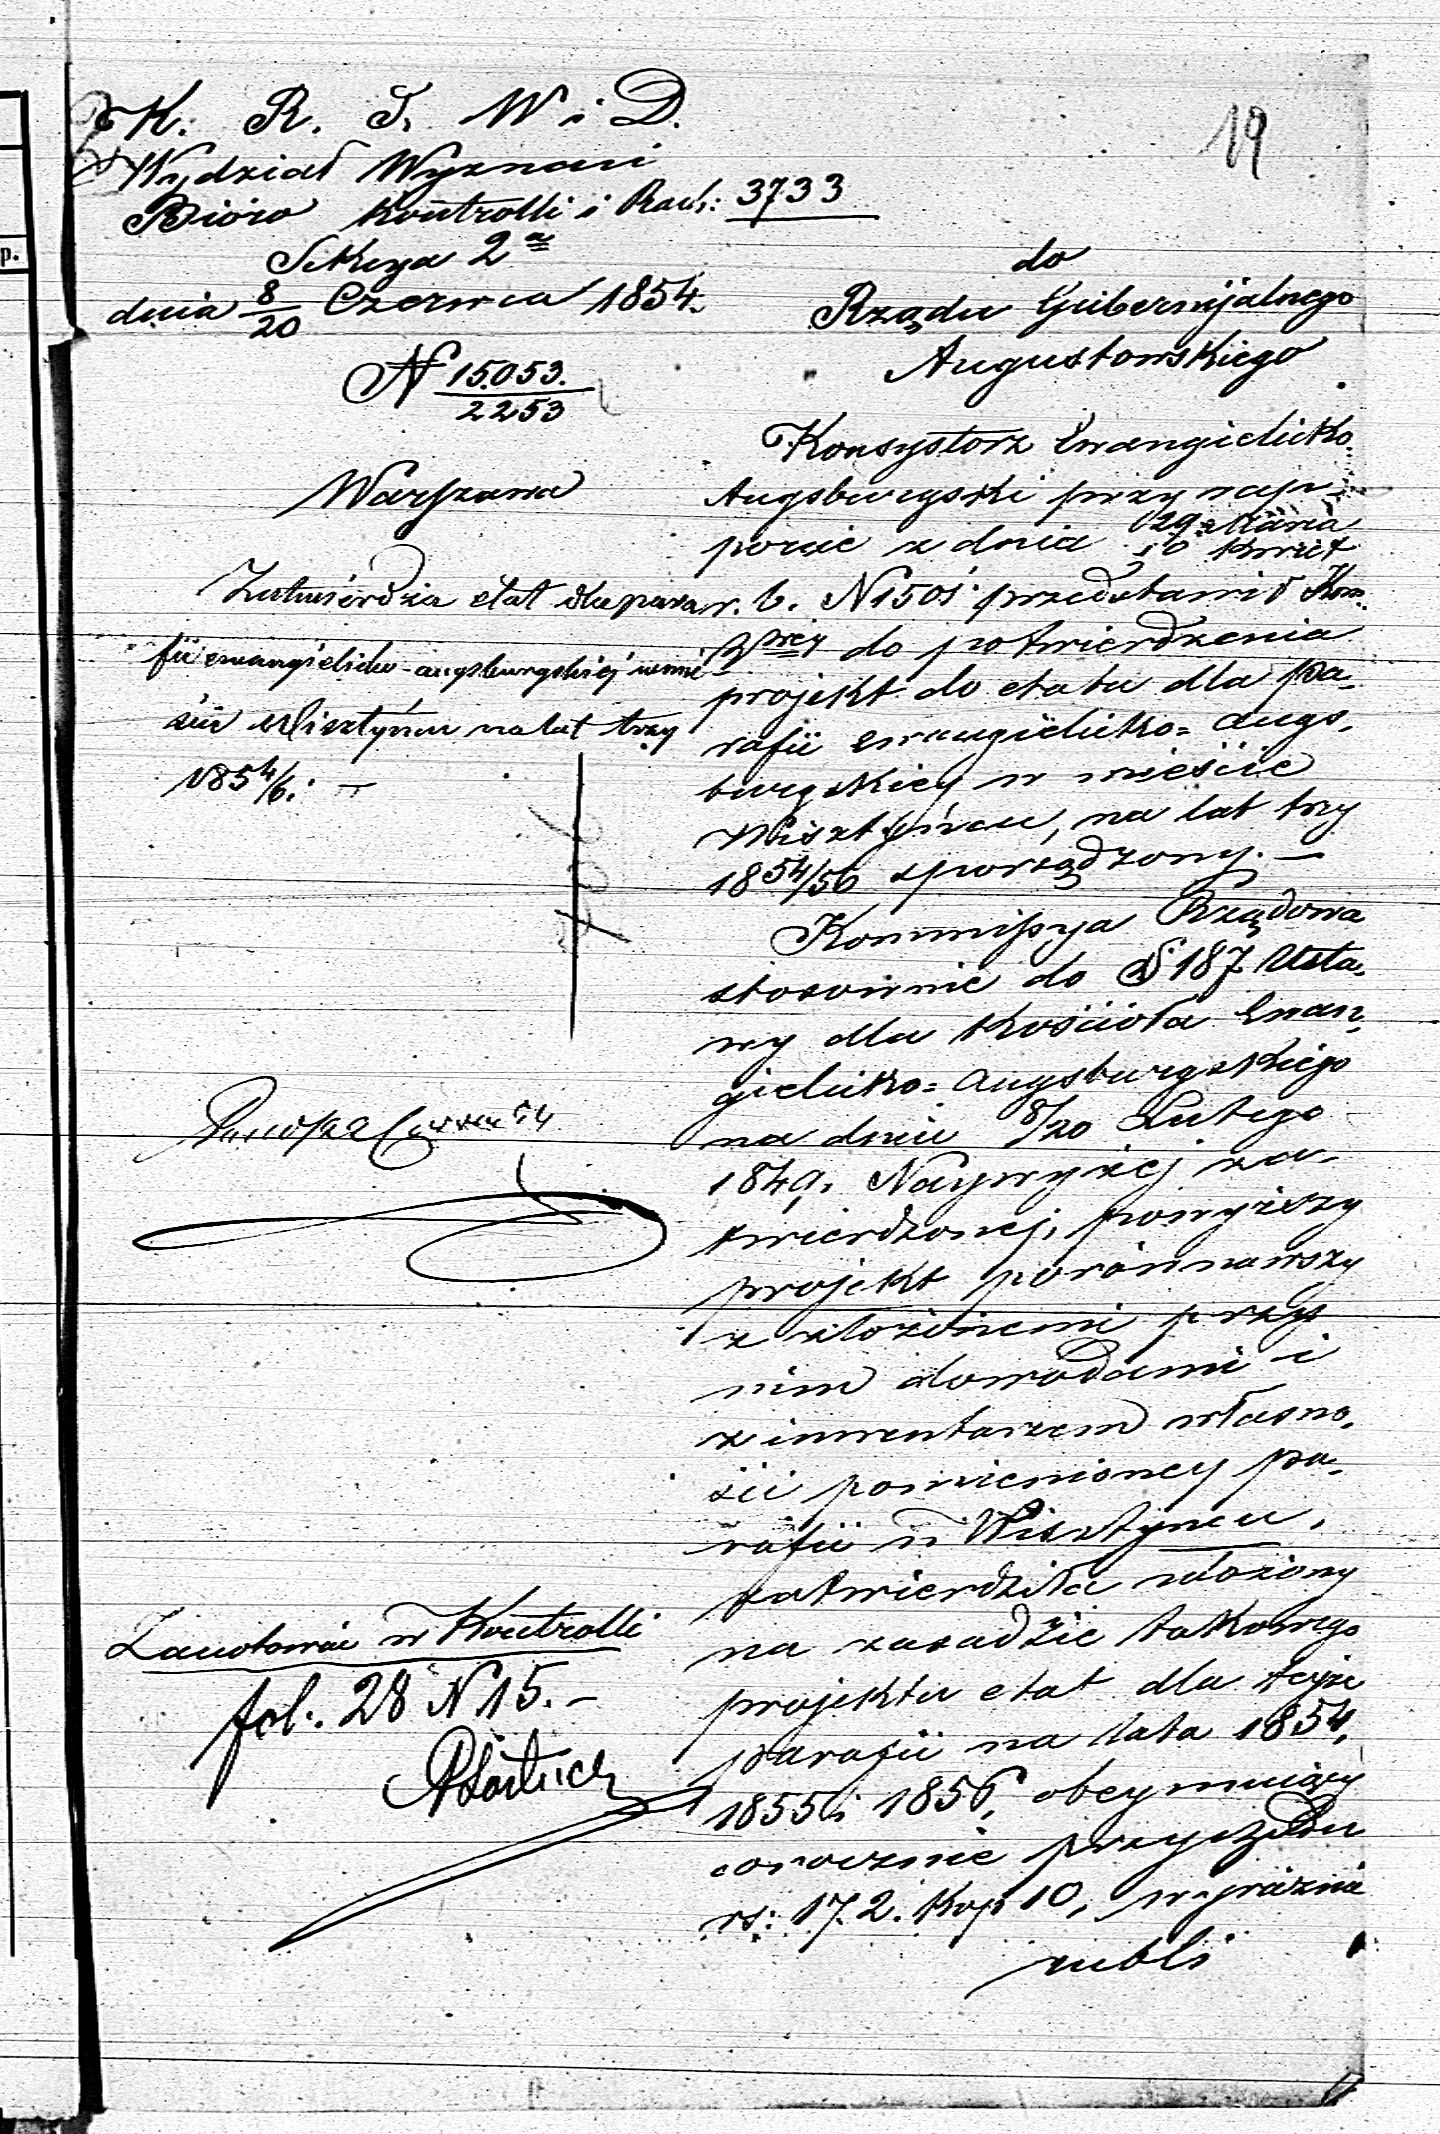 19
K. R. S. W i D.
Wydział Wyznań
Bióro Kontrolli i Rach: 3733
Sekcya 2a
dnia 8/20 Czerwca 1854.
N 15053./2253
Warszawa
do
Rządu Gubernijalnego
Augustowskiego
Zatwierdza etat dla para
fii ewangielicko-augsburgskiej w mie
ście Wisztyńcu na lat trzy
1854/6. —
Konsystorz Ewangielicko
Augsburgski przy rap
porcie z dnia 29 Marca/10 Kwiet
r. b. N 1501 przedstawił Kom
do potwierdzenia
projekt do etatu dla pa-
rafii ewangielicko= augs-
burgskiey w mieście
Wisztyńcu, na lat trzy
1854/56 sporządzony. —
Kommissya Rządowa
stosownie do § 187 Usta-
wy dla Kościoła Ewan-
gielicko= Augsburgskiego
na dniu 8/20 Lutego
1849. Naywyżej za-
twierdzonej, powyższy
projekt porównawszy
z złożonemi przy
nim dowodami i
z inwentarzem własno-
ści pomienioney pa-
rafii w Wisztyńcu,
zatwierdziła ułożony
na zasadzie takowego
projektu etat dla teyże
parafii na lata 1854,
1855 i 1856, obeymujący
corocznie przychodu
rs: 172. kop 10, wyraźnie
rubli
Zanotowano w Kontrolli
fol. 28 N 15. —